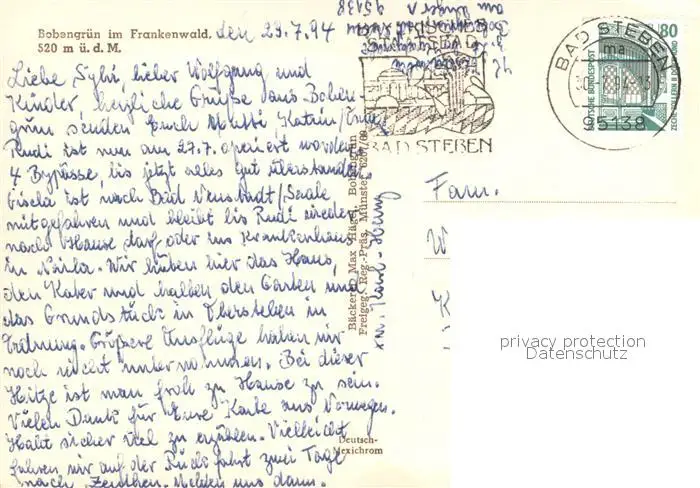 Bobengrün im Frankenwald, den 29.7.94
520 m ü. d. M.
Liebe Sylvi, lieber Wolfgang und
Kinder, herzliche Grüße aus Boben-
grün senden Euch Mutti, Katrin,
Rudi ist nun am 27.7. operiert worden,
4 Bypässe, bis jetzt alles gut überstanden.
Gisela ist nach Bad Neustadt/Saale
mitgefahren und bleibt bis Rudi wieder
nach Hause darf oder ins Krankenhaus
in Naila. Wir hüten hier das Haus,
den Kater und halten den Garten und
das Grundstück in Obersteben in
Ordnung. Größere Ausflüge haben wir
noch nicht unternommen. Bei dieser
Hitze ist man froh zu Hause zu sein.
Vielen Dank für Eure Karte aus Norwegen.
Habt sicher viel zu erzählen. Vielleicht
fahren wir auf der Rückfahrt zwei Tage
nach Zeuthen. Melden uns dann.
Bäckerei Max Hägel, Bobengrün
Freigeg. Reg.-Präs. Münster
Deutsch-
Mexichrom
95138
BAD STEBEN
BAD STEBEN
ma
30.7.94
95138
80
DEUTSCHE BUNDESPOST
Fam.
W
K
privacy protection
Datenschutz